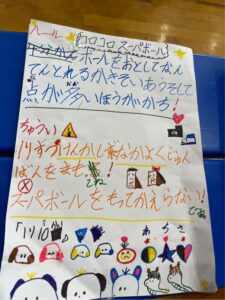 ルール コロコロスーパーボール
1分かんボールをおとしてなん
てんとれるかきそいあうそして
点が多いほうがかち!
ちゅうい
1りずつけんかしなかよくじゅん
ばんをまも
スーパーボールをもってかえらない!
1り10